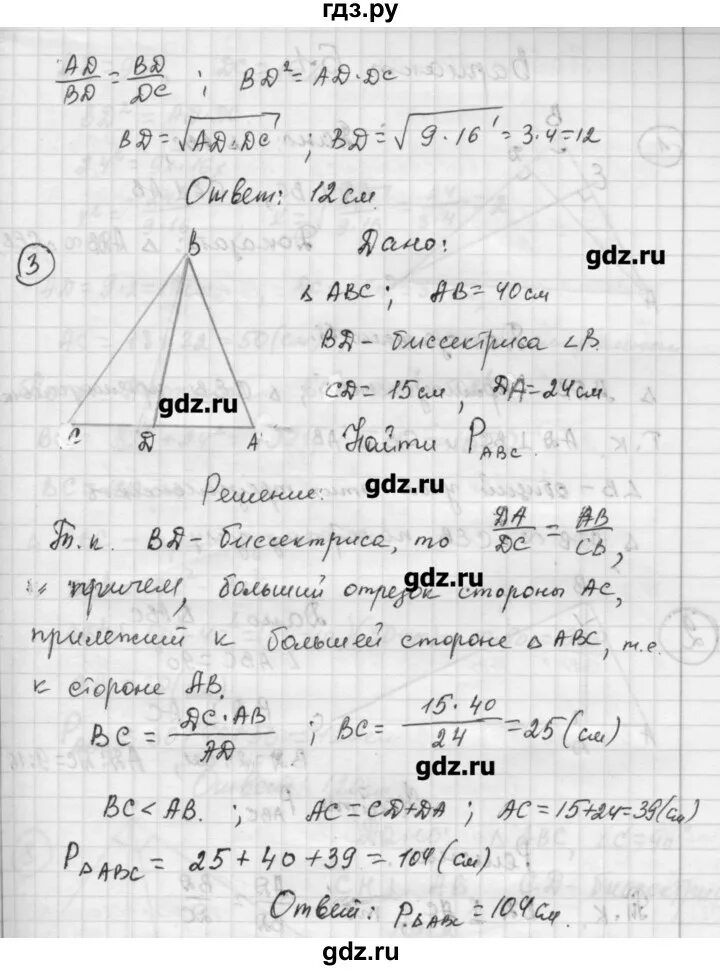 гдз.ру
AD/BD = BD/DC ; BD² = AD·DC
BD = √AD·DC ; BD = √9·16 = 3·4 = 12
Ответ: 12 см.
3
Дано:
gdz.ru
B
Δ ABC ; AB = 40 см
BD – биссектриса ∠B.
CD = 15 см, DA = 24 см.
gdz.ru
C D A
Найти P ABC.
Решение:
gdz.ru
Т.к. BD – биссектриса, то DA/DC = AB/CB,
причем, больший отрезок стороны AC,
gdz.ru
прилежий к большей стороне Δ ABC, т.е.
к стороне AB.
BC = DC·AB/AD ; BC = 15·40/24 = 25 (см)
gdz.ru
BC < AB. ; AC = CD+DA ; AC = 15+24=39(см)
gdz.ru
P ΔABC = 25 + 40 + 39 = 104 (см)
Ответ: P ΔABC = 104 см.
gdz.ru